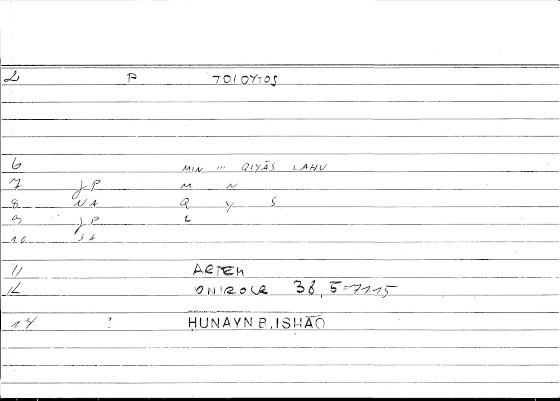 2 P TOIOYTOS
6 MIN ... QIYĀS LAHU
7 JP M N
8 NA Q Y S
9 JP L
10 SA
11 ARTEM
12 ONIROCR 38, 5-7115
14 ? HUNAYN B. ISHĀQ